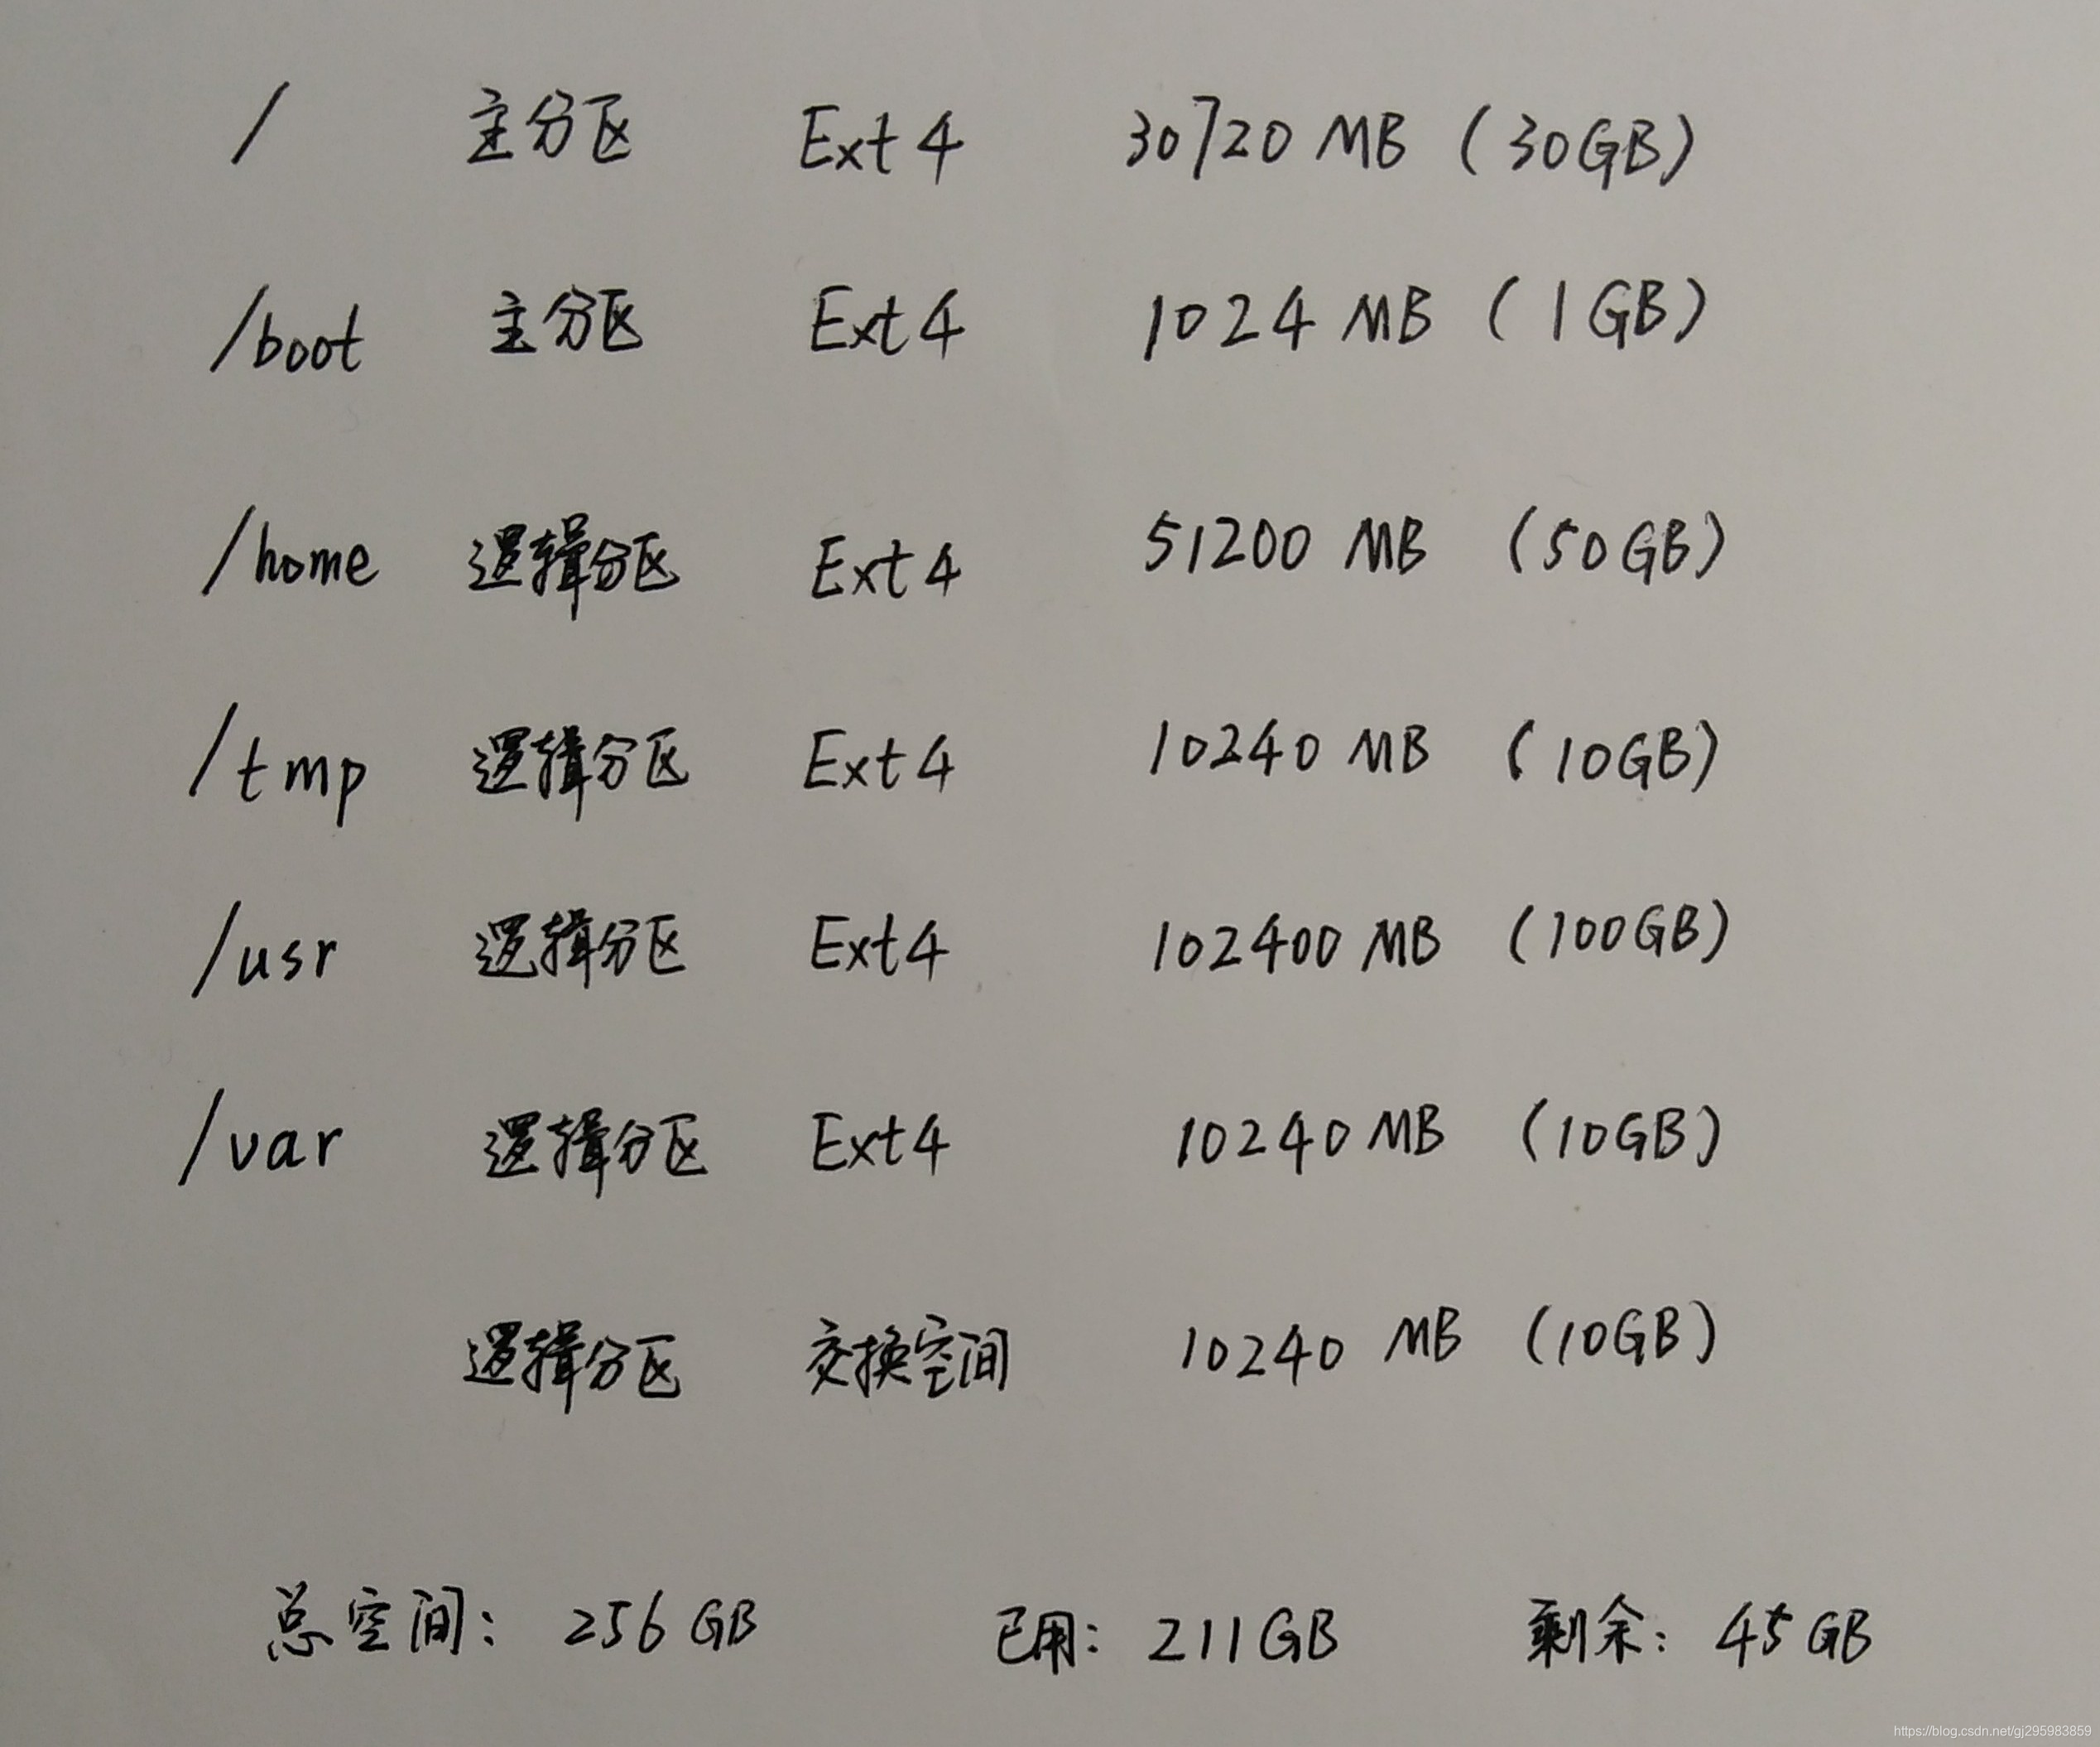 / 主分区 Ext4 30720 MB (30GB)
/boot 主分区 Ext4 1024 MB (1GB)
/home 逻辑分区 Ext4 51200 MB (50GB)
/tmp 逻辑分区 Ext4 10240 MB (10GB)
/usr 逻辑分区 Ext4 102400 MB (100GB)
/var 逻辑分区 Ext4 10240 MB (10GB)
逻辑分区 交换空间 10240 MB (10GB)
总空间: 256GB 已用: 211GB 剩余: 45GB
https://blog.csdn.net/gj295983859